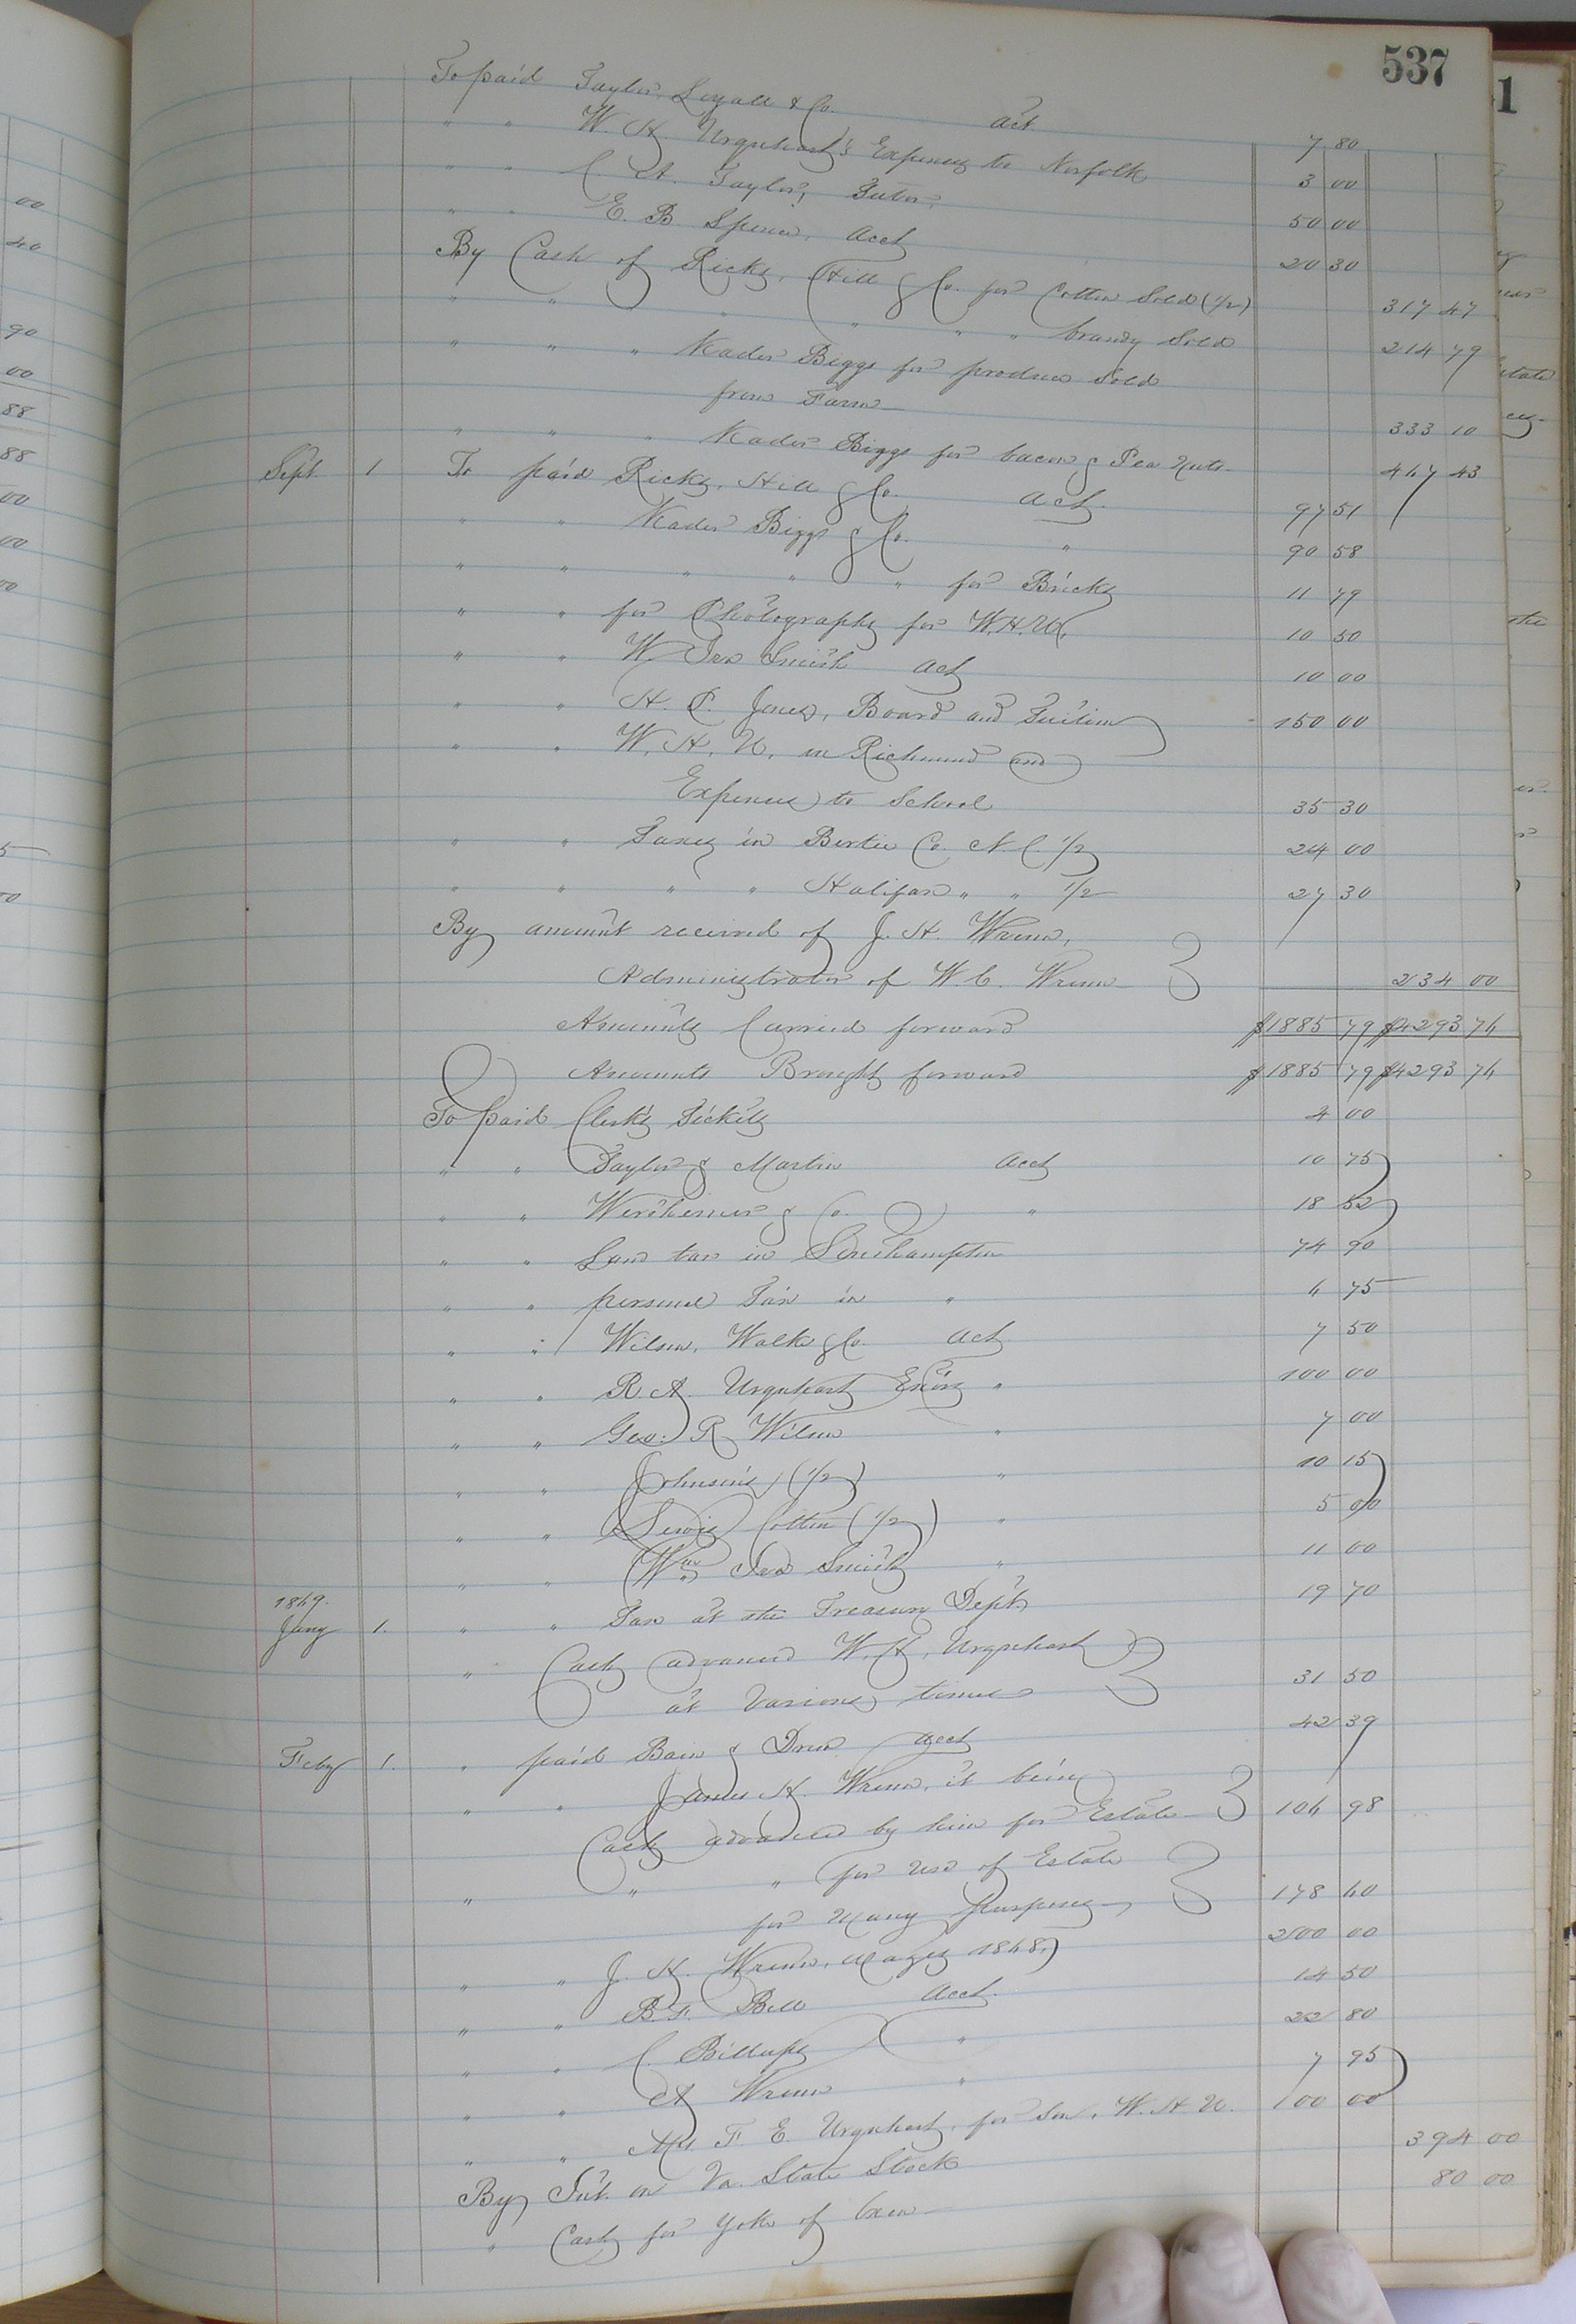 537
To paid Taylor, Loyall & Co. act 7 80
" " W. H. Urquhart's Expenses to Norfolk 3 00
" " C. A. Taylor, Tutor, 50 00
" " E. B. Spence, Acct 20 30
By Cash of Ricks, Hill & Co. for Cotton Sold (1/2) 317 47
" " " " " " brandy Sold 214 79
" " " Kader Biggs for produce Sold
from Farm 333 10
" " " Kader Biggs for bacon & Pea Nuts 467 43
Sept. 1 To paid Ricks, Hill & Co. Act. 97 51
" " Kader Biggs & Co. " 90 58
" " " " " for Bricks 11 79
" " for Photographs for W.H.U. 10 50
" " W. Ira Smith act 10 00
" " H. P. Jones, Board and Tuition 150 00
" " W. H. U. in Richmond and
Expenses to School 35 30
" " Taxes in Bertie Co. N. C. 1/2 24 00
" " " " Halifax " " 1/2 27 30
By amount received of J. H. Wrenn,
Administrator of W. C. Wrenn 234 00
Amounts Carried forward $1885 79 $4293 76
Amounts Brought forward $1885 79 $4293 76
To paid Clerk's Tickets 4 00
" " Taylor & Martin Acct 10 75
" " Wertheimer & Co. " 18 52
" " Land tax in Southampton 74 90
" " personal Tax in " 6 75
" " Wilson, Walke & Co. Act 7 50
" " R. A. Urquhart Exors " 100 00
" " Geo: R Wilson " 7 00
" " Johnson's (1/2) " 10 15
" " Lewis Cotten (1/2) " 5 00
" " Wm Ira Smith " 11 00
1869.
Jany 1. " " Tax at the Treasury Dept. 19 70
" Cash advanced W. H. Urquhart
at Various times 31 50
Feby 1. " paid Bain & Drew Acct 42 39
" " James H. Wrenn, it being
Cash advanced by him for Estate 106 98
" " " for use of Estate
for Many Purposes 178 60
" " J. H. Wrenn, Wages 1868, 200 00
" " B. F. Bell Acct. 14 50
" " C. Billups " 22 80
" " A Wrenn " 7 95
" " Mrs F. E. Urquhart, for Son, W. H. U. 100 00
By Int. on Va. State Stock 394 00
" Cash for Yoke of Oxen 80 00